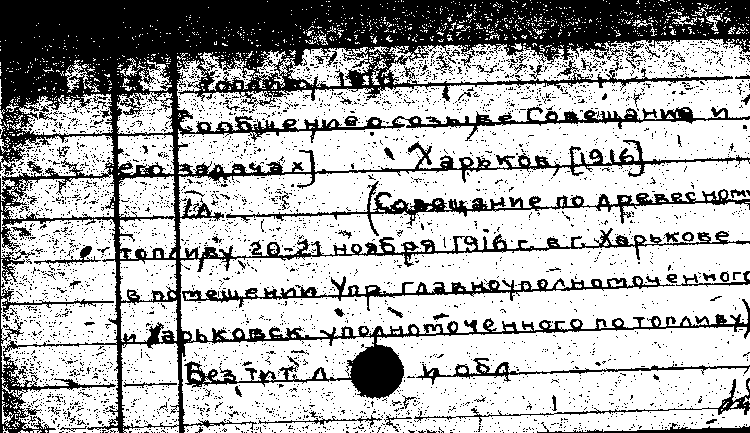 топливу. 1916
Сообщение о созыве Совещания и
его задачах]. Харьков, [1916].
1 л. (Совещание по древесному
топливу 20-21 ноября 1916 г. в г. Харькове
в помещении Упр. главноуполномоченного
и Харьковск. уполномоченного по топливу)
Без тит. л. и обл.